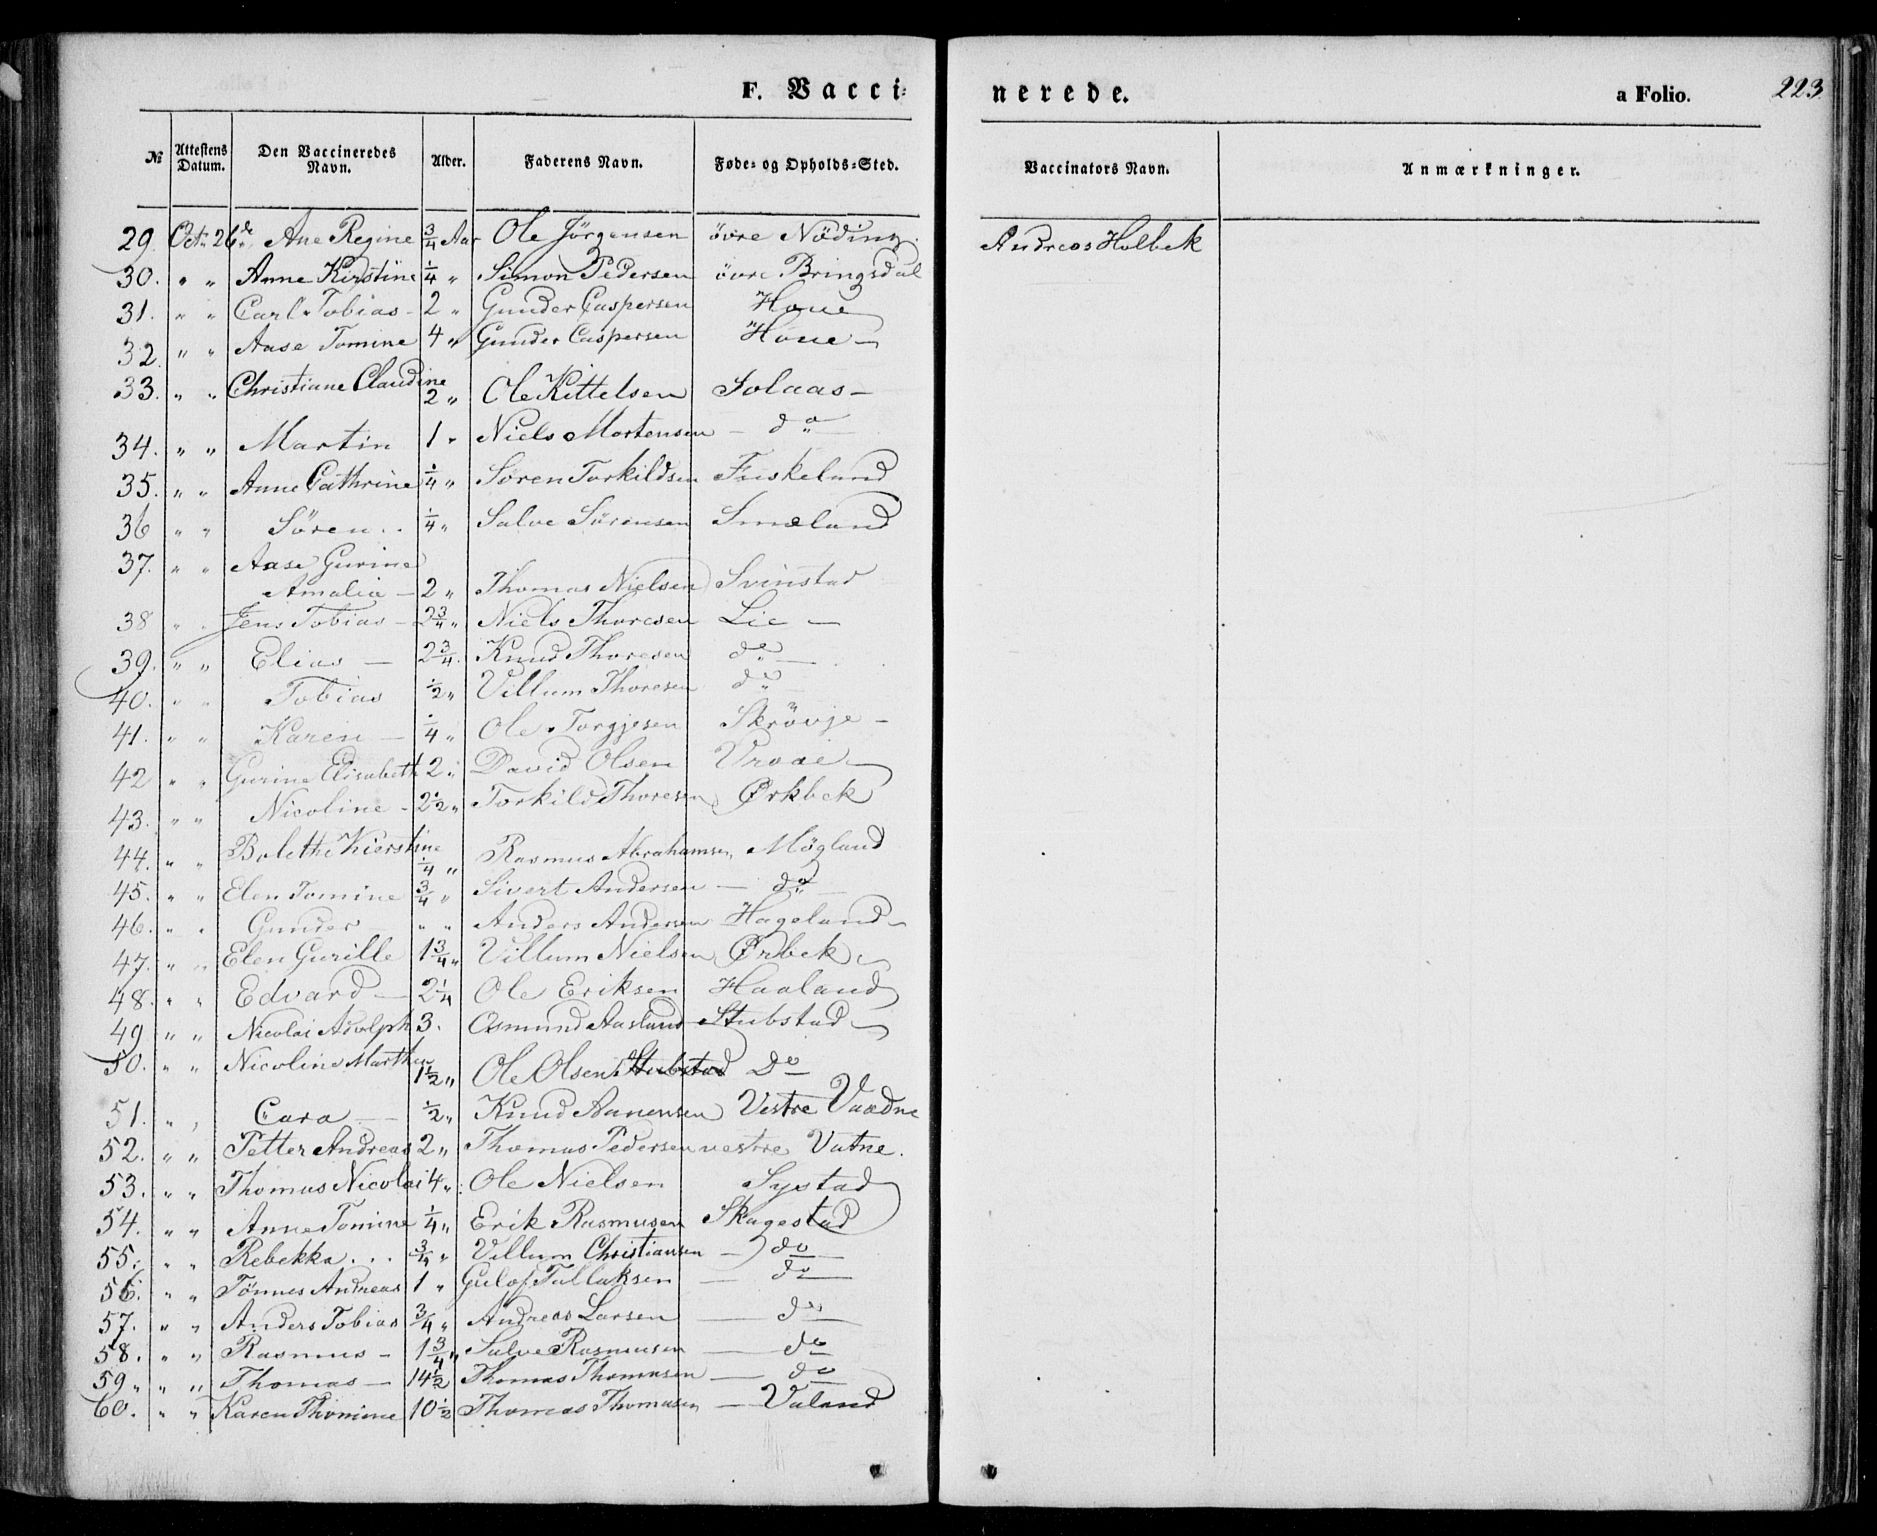 F. Vacci-
nerede.
a Folio.
223
№ Attestens Datum. Den Vaccineredes Navn. Alder. Faderens Navn. Føde- og Opholds-Sted. Vaccinators Navn. Anmærkninger.
29. Oct: 26de Ane Regine 3/4 Aar Ole Jörgensen övre Nöding. Andreas Holbek
30. " " Anne Kirstine 1/4 " Simon Pedersen övre Bringsdal
31. " " Carl Tobias - 2 " Gunder Caspersen Houe
32. " " Aase Tomine 4 " Gunder Caspersen Houe -
33. " " Christiane Claudine 2 " Ole Kittelsen Solaas -
34. " " Martin 1 " Niels Mortensen - do
35. " " Anne Cathrine 1/4 " Sören Torkildsen Fuskeland
36 " " Sören .. 1/4 " Salve Sörensen Smeland
37. " " Aase Gurine
Amalia - 2 " Thomas Nielsen Svinstad
38 " " Jens Tobias - 2 3/4 " Niels Thoresen Lie -
39. " " Elias - 2 3/4 . Knud Thoresen do -
40. " " Tobias 1/2 " Villum Thoresen do -
41. " " Karen - 1/4 " Ole Torgjesen Skrövje -
42 " " Gurine Elisabeth 2 " David Olsen
43. " " Nicoline - 2 1/2 " Torkild Thoresen Ørkbek
44. " " Bolethe Kierstine 1/4 " Rasmus Abrahamsen Mögland
45. " " Elen Tomine 3/4 " Sivert Andersen - do -
46. " " Gunder " " Anders Andersen Hageland -
47. " " Elen Gurille 1 3/4 " Villum Nielsen Ørbek
48. " " Edvard - 2 1/4 Ole Eriksen Haaland
49 " " Nicolai Adolph 3. Osmund Aaslund Stubstad -
50. " " Nicoline Marthe 1 1/2 " Ole Olsen Stubstad Do
51. " " Cara - 1/2 " Knud Aanensen Vestre Vaadne
52. " " Petter Andreas 2 " Thomas Pedersen vestre Vatne.
53. " " Thomas Nicolai 4 " Ole Nielsen Systad
54. " " Anne Tomine 1/4 " Erik Rasmusen Skagestad
55. " " Rebekka ... 3/4 " Villum Christiansen - do
56. " " Tönnes Andreas 1 " Gulof Tallaksen - do
57. " " Anders Tobias 3/4 " Andreas Larsen - do
58. " " Rasmus - 1 3/4 " Salve Rasmusen - do
59 " " " Thomas - 14 1/2 Thomas Thomasen - do
60. " " Karen Thomine 10 1/2 Thomas Thomasen - Valand